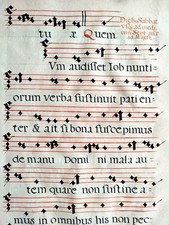 tu æ Quem.
Vm audisset Iob nunti=
orum verba sustinuit pati en=
ter & ait si bona suscepimus
de manu Domi ni mala au=
tem quare non sustine a=
mus in omnibus his non pec=